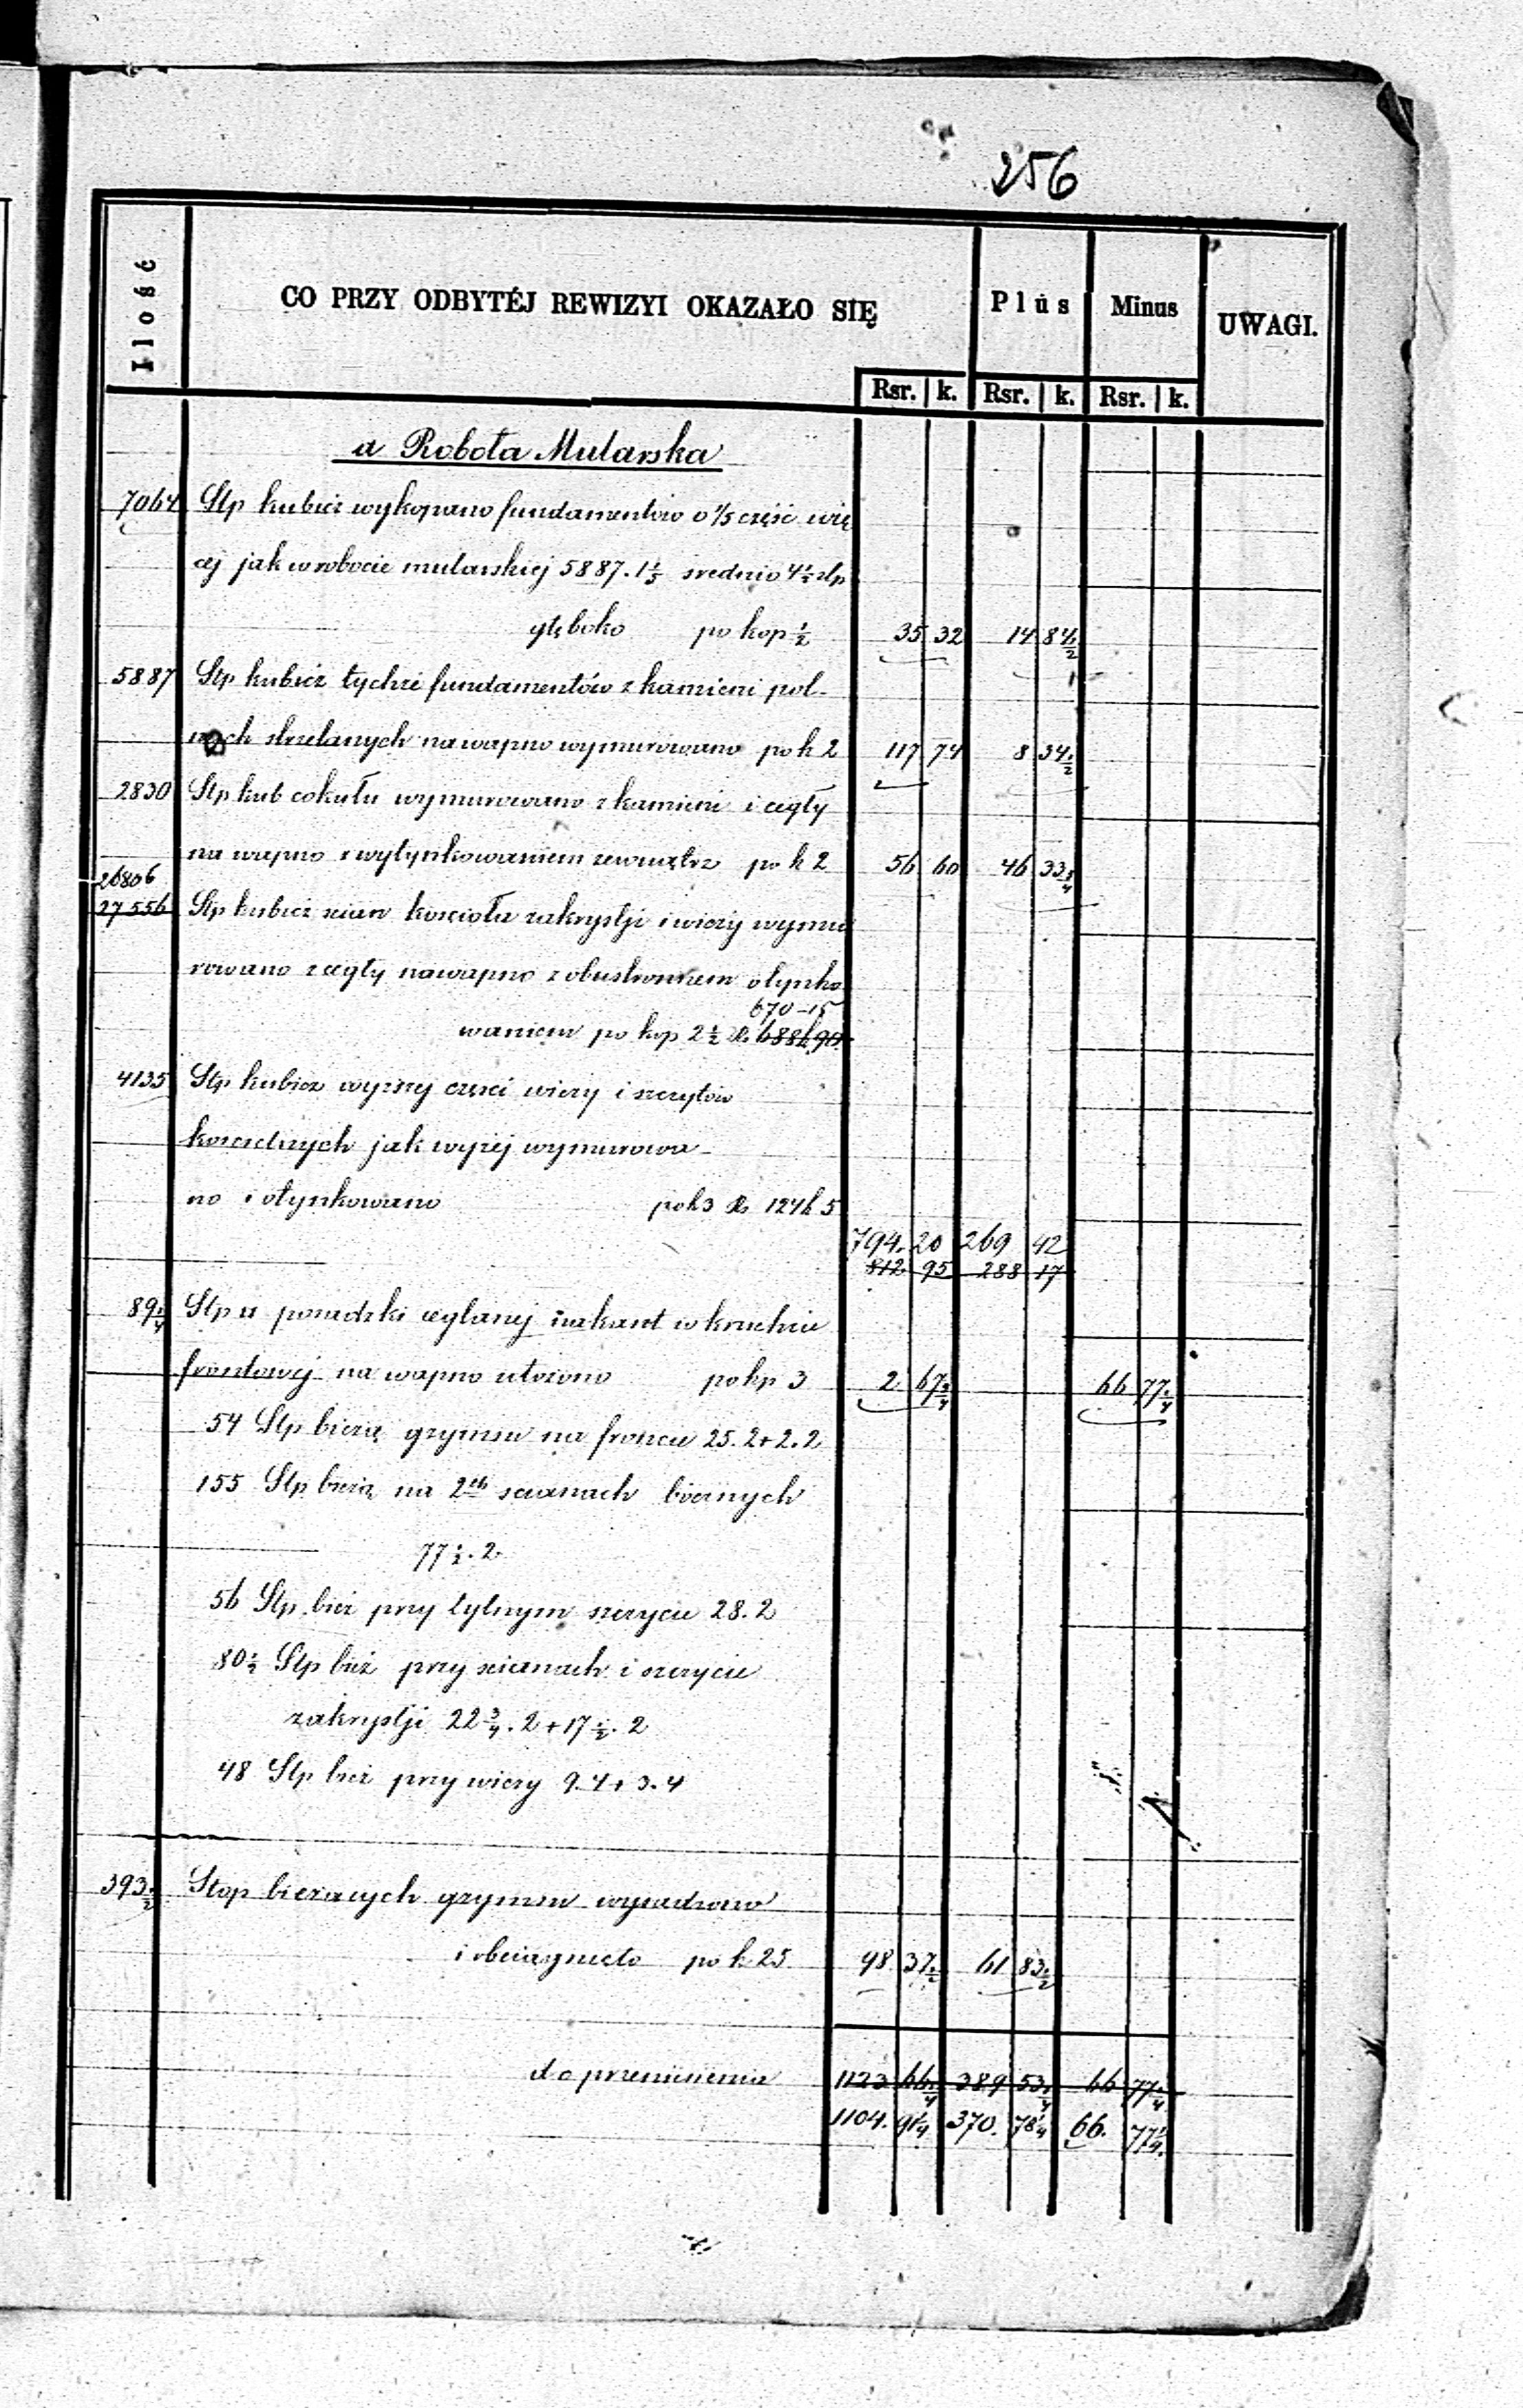 256
Ilość
CO PRZY ODBYTÉJ REWIZYI OKAZAŁO SIĘ
Plus
Minus
UWAGI.
Rsr. k. Rsr. k. Rsr. k.
a Robota Mularska
7064 Stp kubicz wykopano fundamentów o 1/5 część wię
cej jak w robocie mularskiej 5887. 1 1/5 srednio 4 1/2 stp
głęboko po kop 1/2 35 32 14 84 1/2
5887 Stp kubicz tychże fundamentów z kamieni pol-
nych strzelanych na wapno wymurowano po k 2 117 74 8 34 1/2
2830 Stp kub cokułu wymurowano z kamieni i cegły
na wapno z wytynkowaniem zewnątrz po k 2 56 60 46 33 3/4
26806
27556 Stp kubicz scian kościoła zakrystji i wieży wymu
rowano z cegły na wapno z obustronnem otynko
670-15
waniem po kop 2 1/2 Rs 688 k 90
4135 Stp kubicz wyższej części wieży i szczytów
kościelnych jak wyżej wymurowa-
no i otynkowano po k 3 Rs 124 k 5
794. 20 269 42
812. 95 288 17
89 1/4 Stp □ posadzki ceglanej na kant w kruchcie
frontowej na wapno ułożono po kp 3 2 67 3/4 66 77 1/4
54 Stp bieżą gzymsu na froncie 25. 2 + 2. 2
155 Stp bieżą na 2ch scianach bocznych
77 1/2. 2
56 Stp bież przy tylnym szczycie 28. 2
80 1/2 Stp bież przy scianach i szczycie
zakrystji 22 3/4. 2 + 17 1/2. 2
48 Stp bież przy wieży 9. 4 + 3. 4
393 1/2 Stop bieżacych gzymsu wysadzono
i obciągnięto po k 25 98 37 1/2 61 83 1/2
do przeniesienia 1123 66 1/4 389 53 1/4 66 77 1/4
1104. 91 1/4 370. 78 1/4 66. 77 1/4